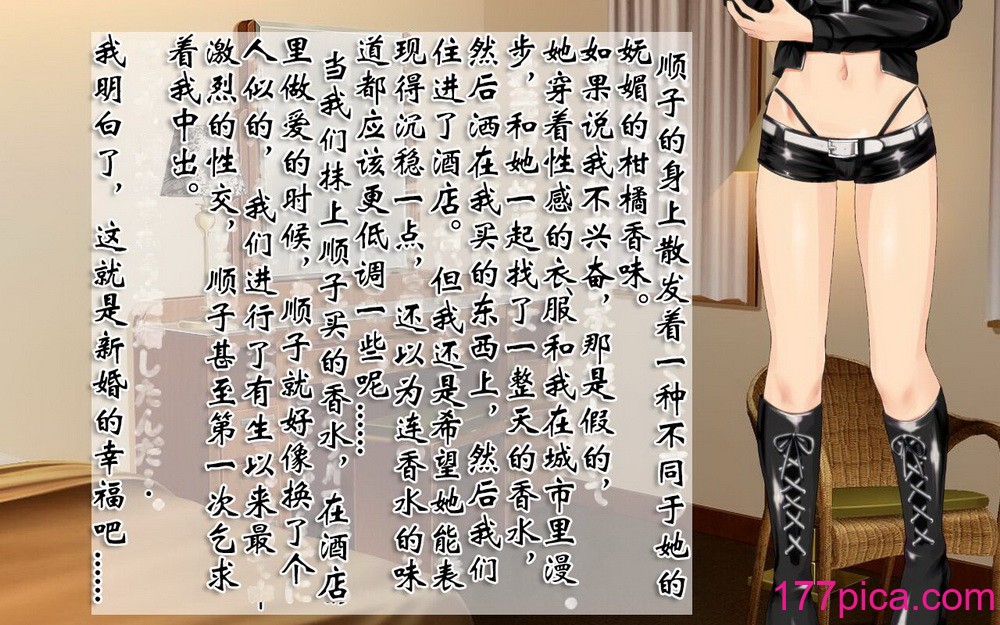 顺子的身上散发着一种不同于她的
妩媚的柑橘香味。
如果说我不兴奋，那是假的，
她穿着性感的衣服和我在城市里漫
步，和她一起找了一整天的香水，
然后洒在我买的东西上，然后我们
住进了酒店。但我还是希望她能表
现得沉稳一点，还以为连香水的味
道都应该更低调一些呢……
当我们抹上顺子买的香水，在酒店
里做爱的时候，顺子就好像换了个
人似的，我们进行了有生以来最
激烈的性交，顺子甚至第一次乞求
着我中出。
我明白了，这就是新婚的幸福吧……
177pica.com